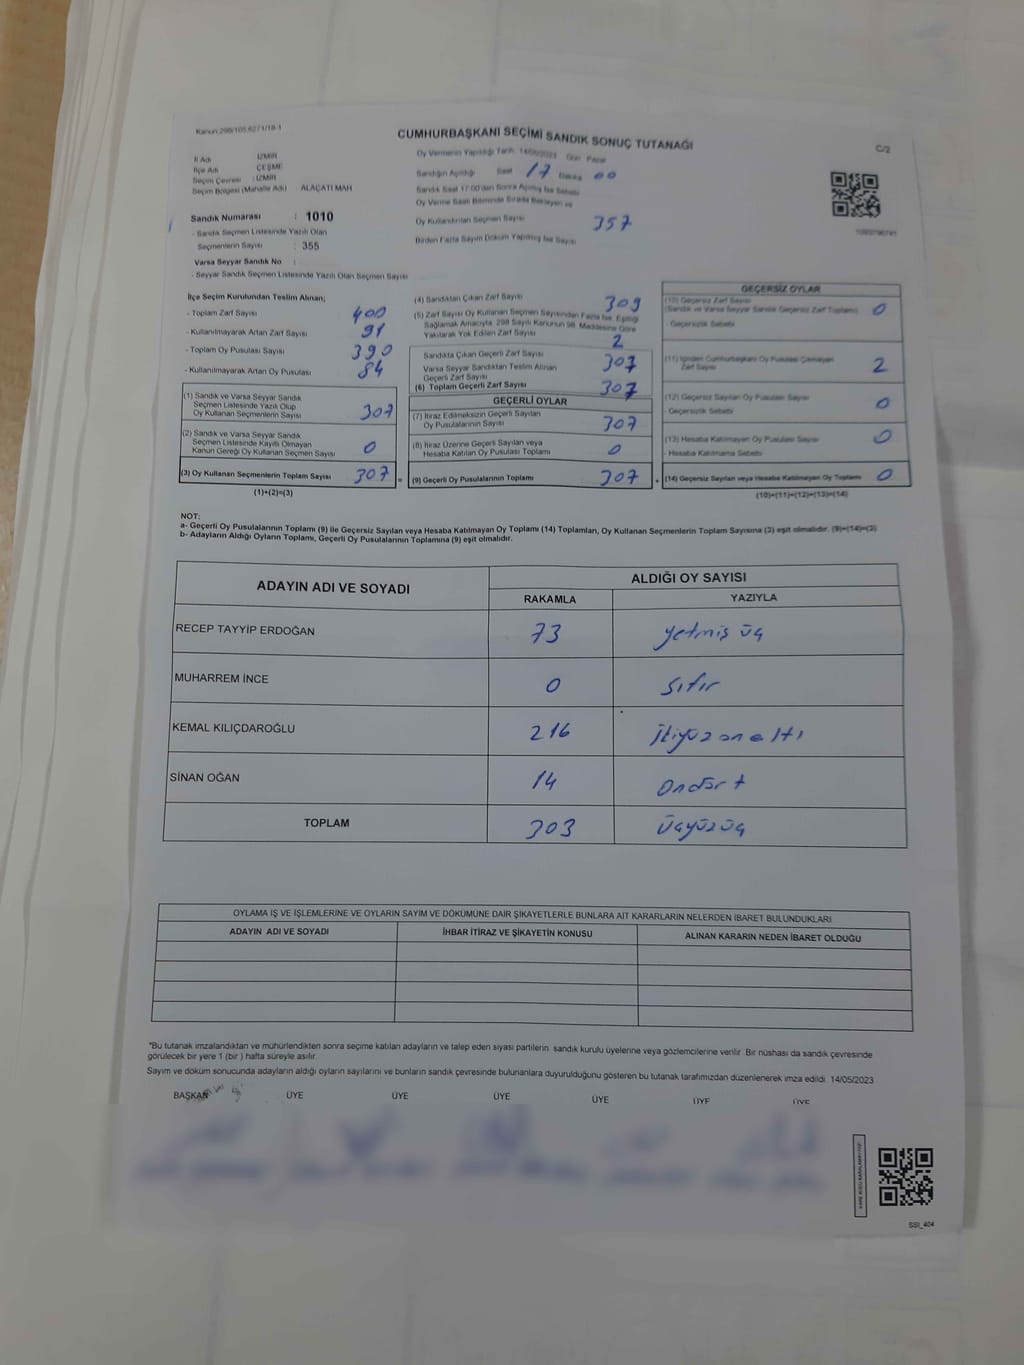 Kanun:298/105,6271/18-1
CUMHURBAŞKANI SEÇİMİ SANDIK SONUÇ TUTANAĞI
C/2
İl Adı : İZMİR
İlçe Adı : ÇEŞME
Seçim Çevresi : İZMİR
Seçim Bölgesi (Mahalle Adı) ALAÇATI MAH
Sandık Numarası : 1010
- Sandık Seçmen Listesinde Yazılı Olan
Seçmenlerin Sayısı : 355
Varsa Seyyar Sandık No :
- Seyyar Sandık Seçmen Listesinde Yazılı Olan Seçmen Sayısı
Oy Vermenin Yapıldığı Tarih: 14/05/2023 Gün: Pazar
Sandığın Açıldığı Saat 17 Dakika 00
Sandık Saat 17:00'den Sonra Açılmış İse Sebebi
Oy Verme Saati Bitiminde Sırada Bekleyen ve
Oy Kullandırılan Seçmen Sayısı 357
Birden Fazla Sayım Döküm Yapılmış İse Sayısı
İlçe Seçim Kurulundan Teslim Alınan;
- Toplam Zarf Sayısı 400
- Kullanılmayarak Artan Zarf Sayısı 91
- Toplam Oy Pusulası Sayısı 390
- Kullanılmayarak Artan Oy Pusulası 84
(1) Sandık ve Varsa Seyyar Sandık
Seçmen Listesinde Yazılı Olup
Oy Kullanan Seçmenlerin Sayısı 307
(2) Sandık ve Varsa Seyyar Sandık
Seçmen Listesinde Kayıtlı Olmayan
Kanun Gereği Oy Kullanan Seçmen Sayısı 0
(3) Oy Kullanan Seçmenlerin Toplam Sayısı 307 =
(1)+(2)=(3)
(4) Sandıktan Çıkan Zarf Sayısı 309
(5) Zarf Sayısı Oy Kullanan Seçmen Sayısından Fazla İse, Eşitliği
Sağlamak Amacıyla, 298 Sayılı Kanunun 98. Maddesine Göre
Yakılarak Yok Edilen Zarf Sayısı 2
Sandıkta Çıkan Geçerli Zarf Sayısı 307
Varsa Seyyar Sandıktan Teslim Alınan
Geçerli Zarf Sayısı
(6) Toplam Geçerli Zarf Sayısı 307
GEÇERLİ OYLAR
(7) İtiraz Edilmeksizin Geçerli Sayılan
Oy Pusulalarının Sayısı 307
(8) İtiraz Üzerine Geçerli Sayılan veya
Hesaba Katılan Oy Pusulası Toplamı 0
(9) Geçerli Oy Pusulalarının Toplamı 307 +
GEÇERSİZ OYLAR
(10) Geçersiz Zarf Sayısı
(Sandık ve Varsa Seyyar Sandık Geçersiz Zarf Toplamı) 0
- Geçersizlik Sebebi
(11) İçinden Cumhurbaşkanı Oy Pusulası Çıkmayan
Zarf Sayısı 2
(12) Geçersiz Sayılan Oy Pusulası Sayısı 0
- Geçersizlik Sebebi
(13) Hesaba Katılmayan Oy Pusulası Sayısı 0
- Hesaba Katılmama Sebebi
(14) Geçersiz Sayılan veya Hesaba Katılmayan Oy Toplamı 0
(10)+(11)+(12)+(13)=(14)
NOT:
a- Geçerli Oy Pusulalarının Toplamı (9) ile Geçersiz Sayılan veya Hesaba Katılmayan Oy Toplamı (14) Toplamları, Oy Kullanan Seçmenlerin Toplam Sayısına (3) eşit olmalıdır. (9)+(14)=(3)
b- Adayların Aldığı Oyların Toplamı, Geçerli Oy Pusulalarının Toplamına (9) eşit olmalıdır.
ADAYIN ADI VE SOYADI
ALDIĞI OY SAYISI
RAKAMLA YAZIYLA
RECEP TAYYİP ERDOĞAN 73 yetmiş üç
MUHARREM İNCE 0 sıfır
KEMAL KILIÇDAROĞLU 216 ikiyüz on altı
SİNAN OĞAN 14 ondört
TOPLAM 303 üçyüzüç
OYLAMA İŞ VE İŞLEMLERİNE VE OYLARIN SAYIM VE DÖKÜMÜNE DAİR ŞİKAYETLERLE BUNLARA AİT KARARLARIN NELERDEN İBARET BULUNDUKLARI
ADAYIN ADI VE SOYADI İHBAR İTİRAZ VE ŞİKAYETİN KONUSU ALINAN KARARIN NEDEN İBARET OLDUĞU
*Bu tutanak imzalandıktan ve mühürlendikten sonra seçime katılan adayların ve talep eden siyasi partilerin sandık kurulu üyelerine veya gözlemcilerine verilir. Bir nüshası da sandık çevresinde
görülecek bir yere 1 (bir ) hafta süreyle asılır.
Sayım ve döküm sonucunda adayların aldığı oyların sayılarını ve bunların sandık çevresinde bulunanlara duyurulduğunu gösteren bu tutanak tarafımızdan düzenlenerek imza edildi. 14/05/2023
BAŞKAN ÜYE ÜYE ÜYE ÜYE ÜYE ÜYE
SSI_404